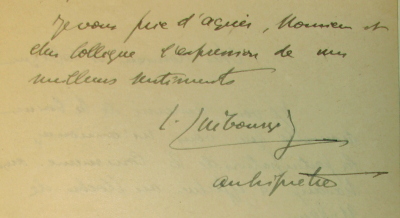 Je vous prie d'agréer, Monsieur et
cher Collègue l'expression de mes
meilleurs sentiments
archiprêtre